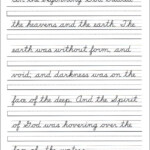 the heavens and the earth. The
earth was without form, and
void; and darkness was on the
face of the deep. And the Spirit
of God was hovering over the